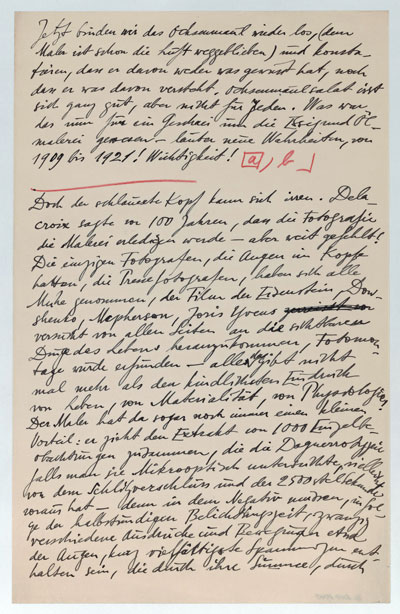 Jetzt binden wir das Ochsenmaul wieder los, (dem
Maler ist schon die Luft weggeblieben) und konsta-
tieren, dass er davon weder was gewusst hat, noch
dass er was davon versteht. Ochsenmaulsalat isst
sich ganz gut, aber nicht für Jeden. Was war
das nun für ein Geschrei um die Essig und Öl-
malerei gewesen – lauter neue Wahrheiten, von
1909 bis 1921! Wichtigkeit! a, b
Doch der schlaueste Kopf kann sich irren. Dela-
croix sagte vor 100 Jahren, dass die Fotografie
die Malerei erledigen werde – aber weit gefehlt!
Die einzigen Fotografen, die Augen im Kopfe
hatten, die Pressefotografen, haben sich alle
Mühe genommen, der Film der Eisenstein, Dow-
shenko, Mepherson, Joris Yvens
versucht von allen Seiten an die sichtbaren
Dinge des Lebens heranzukommen, Fotomon-
tage wurde erfunden – alles gibt nicht
mal mehr als den kindlichsten Eindruck
von Leben, von Materialität, von Physiologien.
Der Maler hat da sogar noch immer einen kleinen
Vorteil: er zieht den Extrakt von 1000 Einzelbe-
obachtungen zusammen, die die Daguerrotypie
falls man sie Mikrooptisch untersuchte,
vor dem Schlitzverschluss und der 2500stel Sekunde
voraus hat – denn in dem Negativ mussten, infol-
ge der halbstündigen Belichtungszeit, zwanzig
verschiedene Ausdrücke und Bewegungen etwa
der Augen, kurz vielfältigste Spannungen ent-
halten sein, die durch ihre Summe, durch